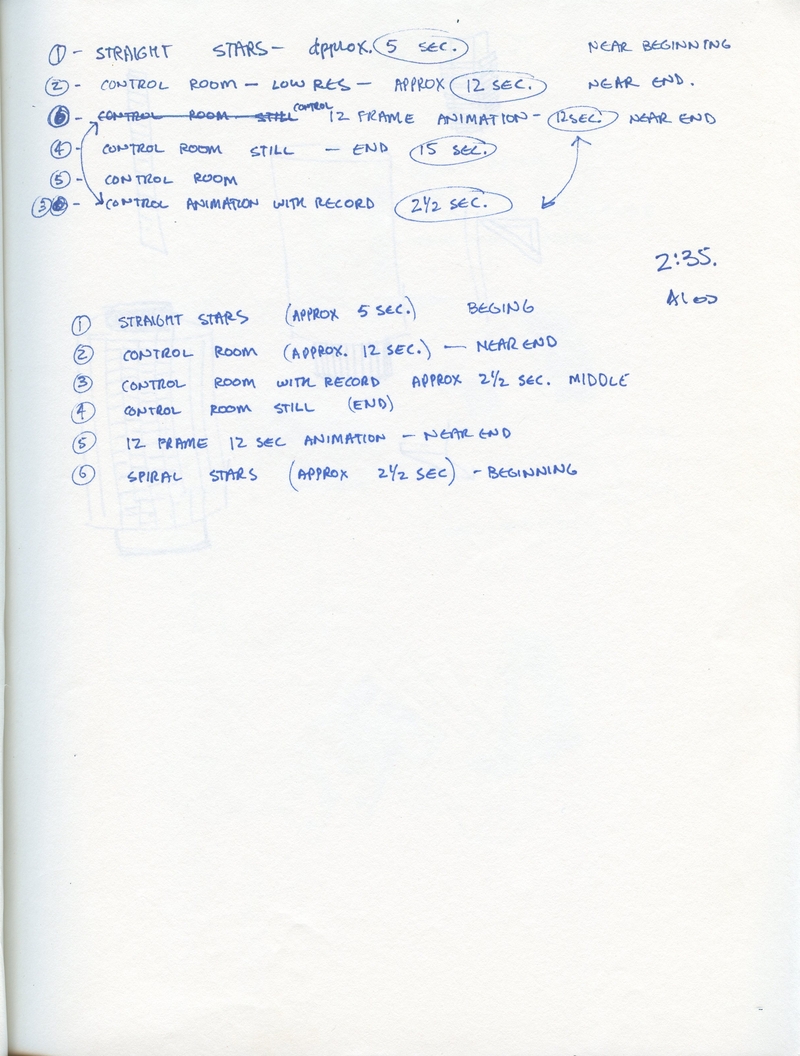 ① - STRAIGHT STARS - approx. 5 SEC. NEAR BEGINNING
② - CONTROL ROOM - LOW RES - APPROX 12 SEC. NEAR END.
⑥ - CONTROL ROOM STILL CONTROL 12 FRAME ANIMATION - 12 SEC. NEAR END
④ - CONTROL ROOM STILL - END 15 SEC.
⑤ - CONTROL ROOM
③ - CONTROL ANIMATION WITH RECORD 2 1/2 SEC.
2:35.
① STRAIGHT STARS (APPROX 5 SEC.) BEGING
② CONTROL ROOM (APPROX. 12 SEC.) - NEAR END
③ CONTROL ROOM WITH RECORD APPROX 2 1/2 SEC. MIDDLE
④ CONTROL ROOM STILL (END)
⑤ 12 FRAME 12 SEC ANIMATION - NEAR END
⑥ SPIRAL STARS (APPROX 2 1/2 SEC) - BEGINNING